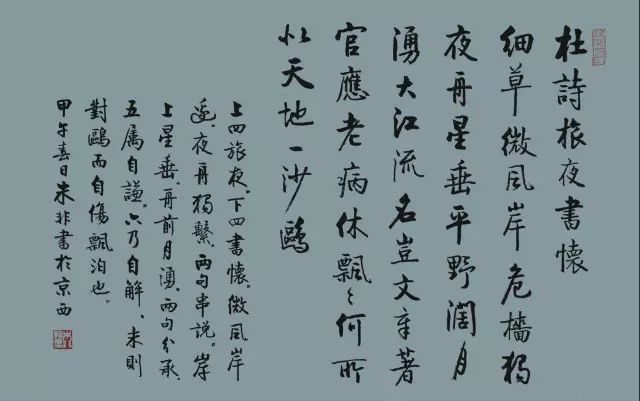 杜詩旅夜書懷
細草微風岸危檣獨
夜舟星垂平野闊月
湧大江流名豈文章著
官應老病休飄〻何所
似天地一沙鷗
上四旅夜、下四書懷。微風岸
邊、夜舟獨繫、兩句串說。岸
上星垂、舟前月湧、兩句分承。
五属自謙、六乃自解、末則
對鷗而自傷飄泊也。
甲午春日朱非書於京西